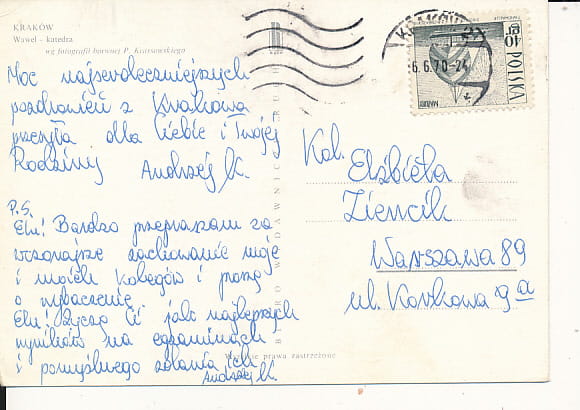 KRAKÓW
Wawel – katedra
wg fotografii barwnej P. Krassowskiego
Moc najserdeczniejszych
pozdrowień z Krakowa
przesyła dla Ciebie i Twojej
Rodziny Andrzej K.
P.S.
Elu! Bardzo przepraszam za
wczorajsze zachowanie moje
i moich kolegów i proszę
o wybaczenie.
Elu! Życzę Ci jak najlepszych
wyników na egzaminach
i pomyślnego zdania ich
Andrzej K.
Wszelkie prawa zastrzeżone
BIURO WYDAWNICZE RUCH
KRAKÓW 2
6.6.70-24
40 gr
POLSKA
Kol. Elżbieta
Ziencik
Warszawa 89
ul. Korkowa 9a